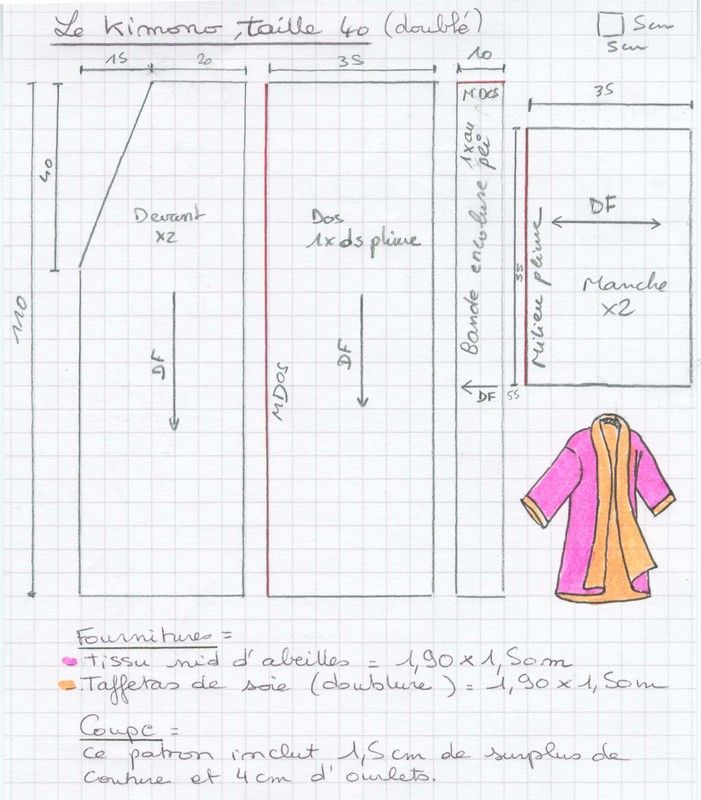 Le Kimono, taille 40 (doublé)
5cm
5cm
15
20
35
10
35
40
110
Devant
x2
DF
Dos
1x ds pliure
DF
MDOS
MDOS
Bande encolure 1x au pli
DF
55
35
Milieu pliure
DF
Manche
x2
Fournitures =
- Tissu nid d'abeilles = 1,90 x 1,50m
- Taffetas de soie (doublure) = 1,90 x 1,50m
Coupe =
Ce patron inclut 1,5cm de surplus de
couture et 4cm d'ourlets.